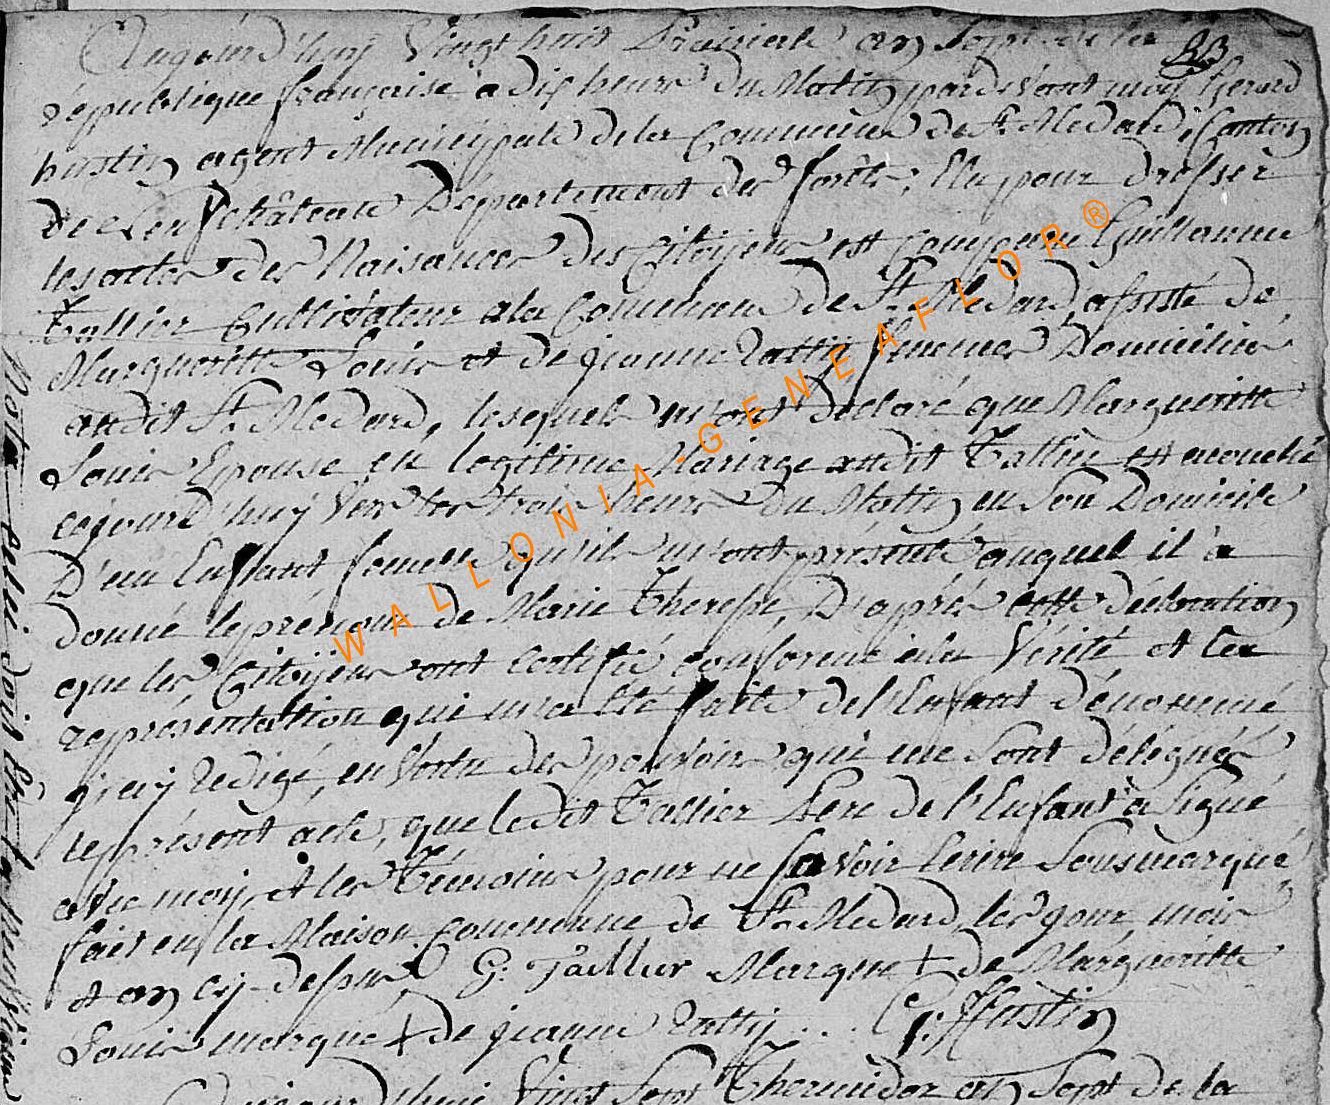 Aujourd'huy Vingt huit Prairial an Sept de la
république française à dix heure du Matin, pardevant moy Gerard
hustin agent Municipale de la Commune de St Medard, Canton
de Neufchâteau Département des forêts, Elu pour dresser
les actes des Naisances des Citoyens est comparu Guillaume
Tallier Cultivateur a la Commune de St Medard, assisté de
Margueritte Louis et de jeanne Zattij femmes Domiciliées
audit St Medard, lesquels m'ont déclaré que Margueritte
Louis Epouse en legitime Mariage audit Tallier est acouchée
cejourd'huy Vers les trois heure du Matin en Son Domicile
D'un Enfant femelle qu'ils m'ont présenté auquel il a
donné le prénom de Marie Theresse, D'après cette déclaration
que les Citoyens ont certifié conforme à la Vérité et la
représentation qui m'a été faite de l'Enfant dénommé
j'ay Redigé, en Vertu des pouvoirs qui me Sont délégués
le présent acte, que le dit Tallier Pere de l'Enfant à Signé
avec moy, et les Témoins pour ne Savoir Ecrire Sousmarqué,
fait en la Maison Commune de St Medard, les jour, mois
et an cy-dessus G. Tallier Marque + de Margueritte
Louis marque + de jeanne Zattij ... G. Hustin
Aujourd'hui Vingt Sept Thermidor an Sept de la
WALLONIA-GENEAFLOR®